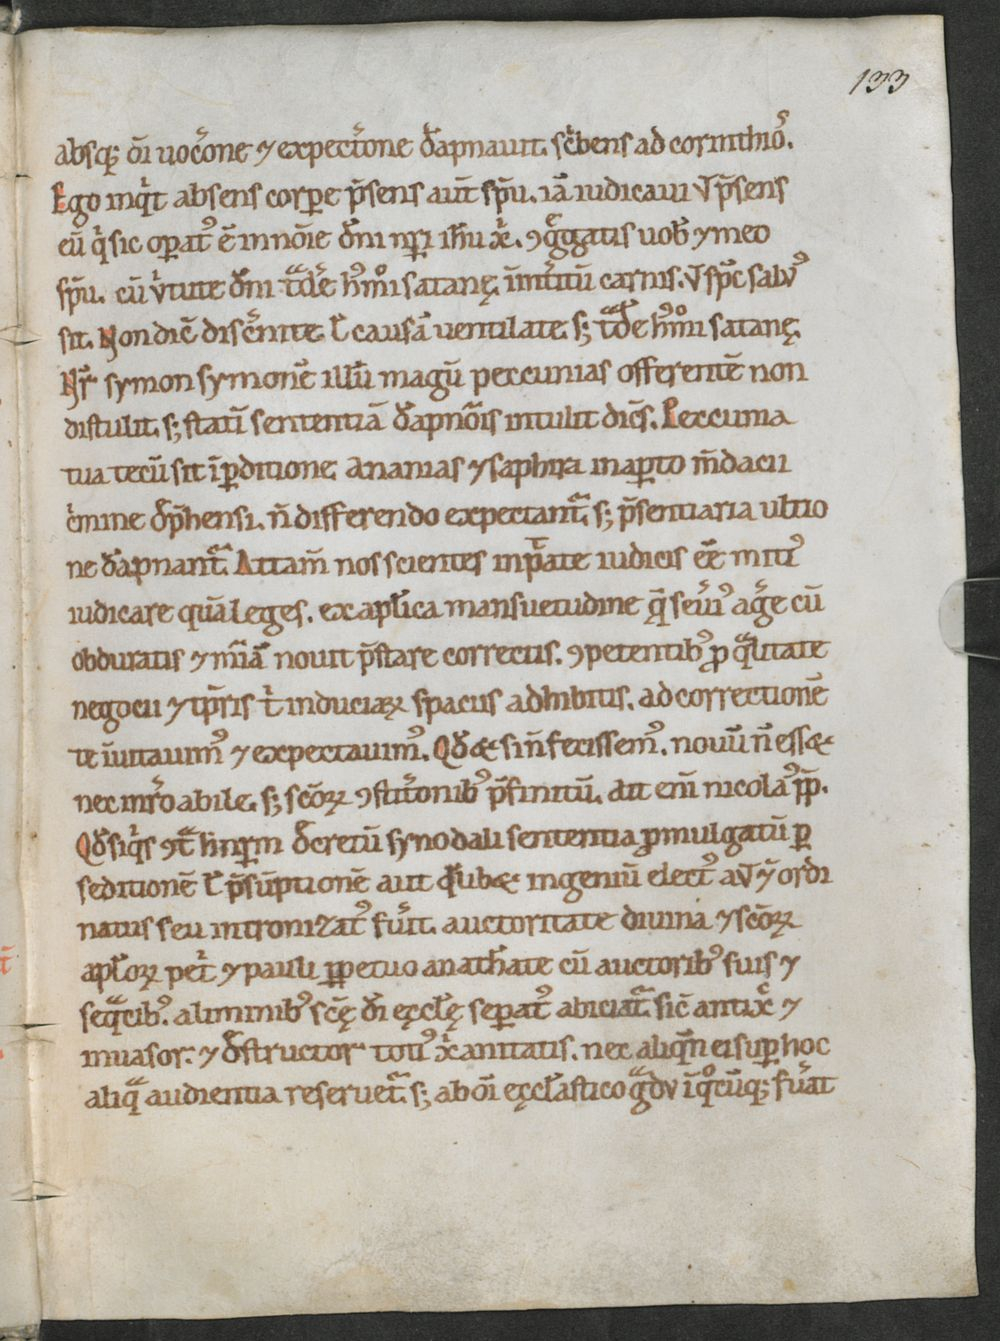 133
absq; om̄i uocͨone ⁊ expectͨone dāpnauit. scͥbens ad corinthioꝰ.
Ego inqͥt absens corꝑe p̄sens aut̄ sp̄u. iā iudicaui ut p̄sens
eū qͥ sic oꝑatꝰ ē in nōie dn̄i nr̄i ih̄u xͥ. ꝯgͤgatis uob̄ ⁊ meo
sp̄u. cū uͥtute dn̄i tͣdͤe hꝰmoͥ satanę. in int̄itū carnis. ut sp̄c saluꝰ
sit. Non dic̄ disc̄nite. ł causā uentilate. s; tͣde hꝰmoͥ satanę.
Nr̄ symon symonē illū magū peccunias offerentē non
distulit. s; statī sententiā dāpnōis intulit dicēs. Peccunia
tua tecū sit ī ꝑditione. Ananias ⁊ saphira in aꝑto m̄dacii
cͥmine dep̄hensi. n̄ differendo expectantͬ. s; p̄sentiaria ultio
ne dāpnantͬ. Attam̄ nos scientes inp̄cate iudicis eē mitiꝰ
iudicare quā leges. ex apl̄ica mansuetudine q̄ seuiꝰ agͤe cū
obduratis ⁊ mīaͫ nouit p̄stare correctis. ꝯpetentibꝰ ꝓ qͣlitate
negocii ⁊ tp̄ris tͥ induciaꝝ spaciis adhibitis. ad correctionē
te īuitauimꝰ ⁊ expectauimꝰ. Qd̄ & si n̄ fecissemꝰ. nouū n̄ ess&
nec mͥrabile. s; scōꝝ ꝯstitͨonibꝰ p̄finitū. Ait enī nicolaꝰ pp̄.
Qd̄ siqͥs ꝯtͣ hͨ nr̄m decretū synodali sententia ꝓmulgatū ꝑ
seditionē ł p̄sūptionē aut qͦlib& ingeniū electꝰ aut ⁊ ordi
natus seu intronizatꝰ fuͥit. auctoritate diuina ⁊ scōꝝ
apl̄oꝝ petͥ ⁊ pauli ꝑpetuo anathͤate cū auctoribꝰ suis ⁊
seqͣcibꝰ. a liminibꝰ scē dī ęcclę seꝑatꝰ abiciatͬ. sic̄ antixͨ ⁊
inuasor. ⁊ destructor totiꝰ xͥanitatis. nec aliqͣ ei suꝑ hoc
aliqͣ audientia reseruetͬ. s; ab oī ęccl̄astico gͣdu ī qͦcūq; fuͤat